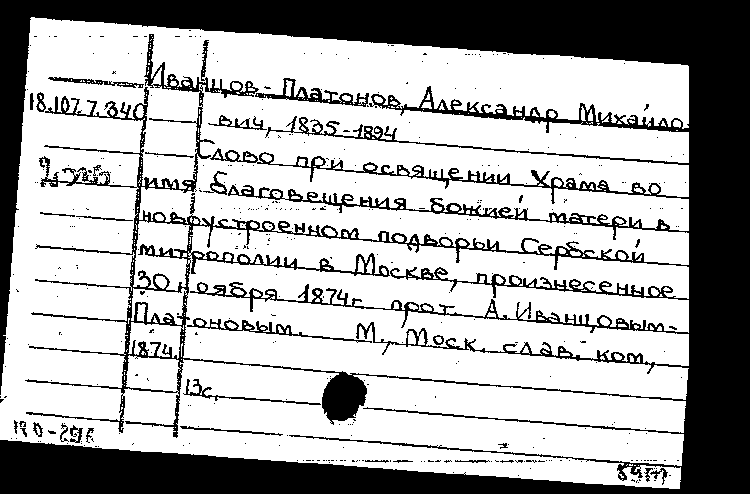 Иванцов-Платонов, Александр Михайло-
18.107.7.340
вич, 1835-1894
Слово при освящении Храма во
2 экз
имя Благовещения Божией матери в
новоустроенном подворьи Сербской
митрополии в Москве, произнесенное
30 ноября 1874г. прот. А. Иванцовым-
Платоновым. М., Моск. слав. ком.,
1874.
13с.